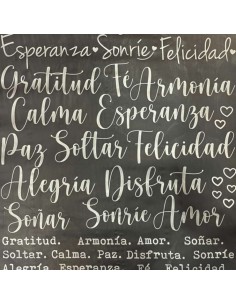 Esperanza Sonríe Felicidad
Gratitud Fé Armonía
Calma Esperanza
Paz Soltar Felicidad
Alegría Disfruta
Soñar Sonríe Amor
Gratitud. Armonía. Amor. Soñar.
Soltar. Calma. Paz. Disfruta. Sonríe
Alegría. Esperanza. Fé. Felicidad